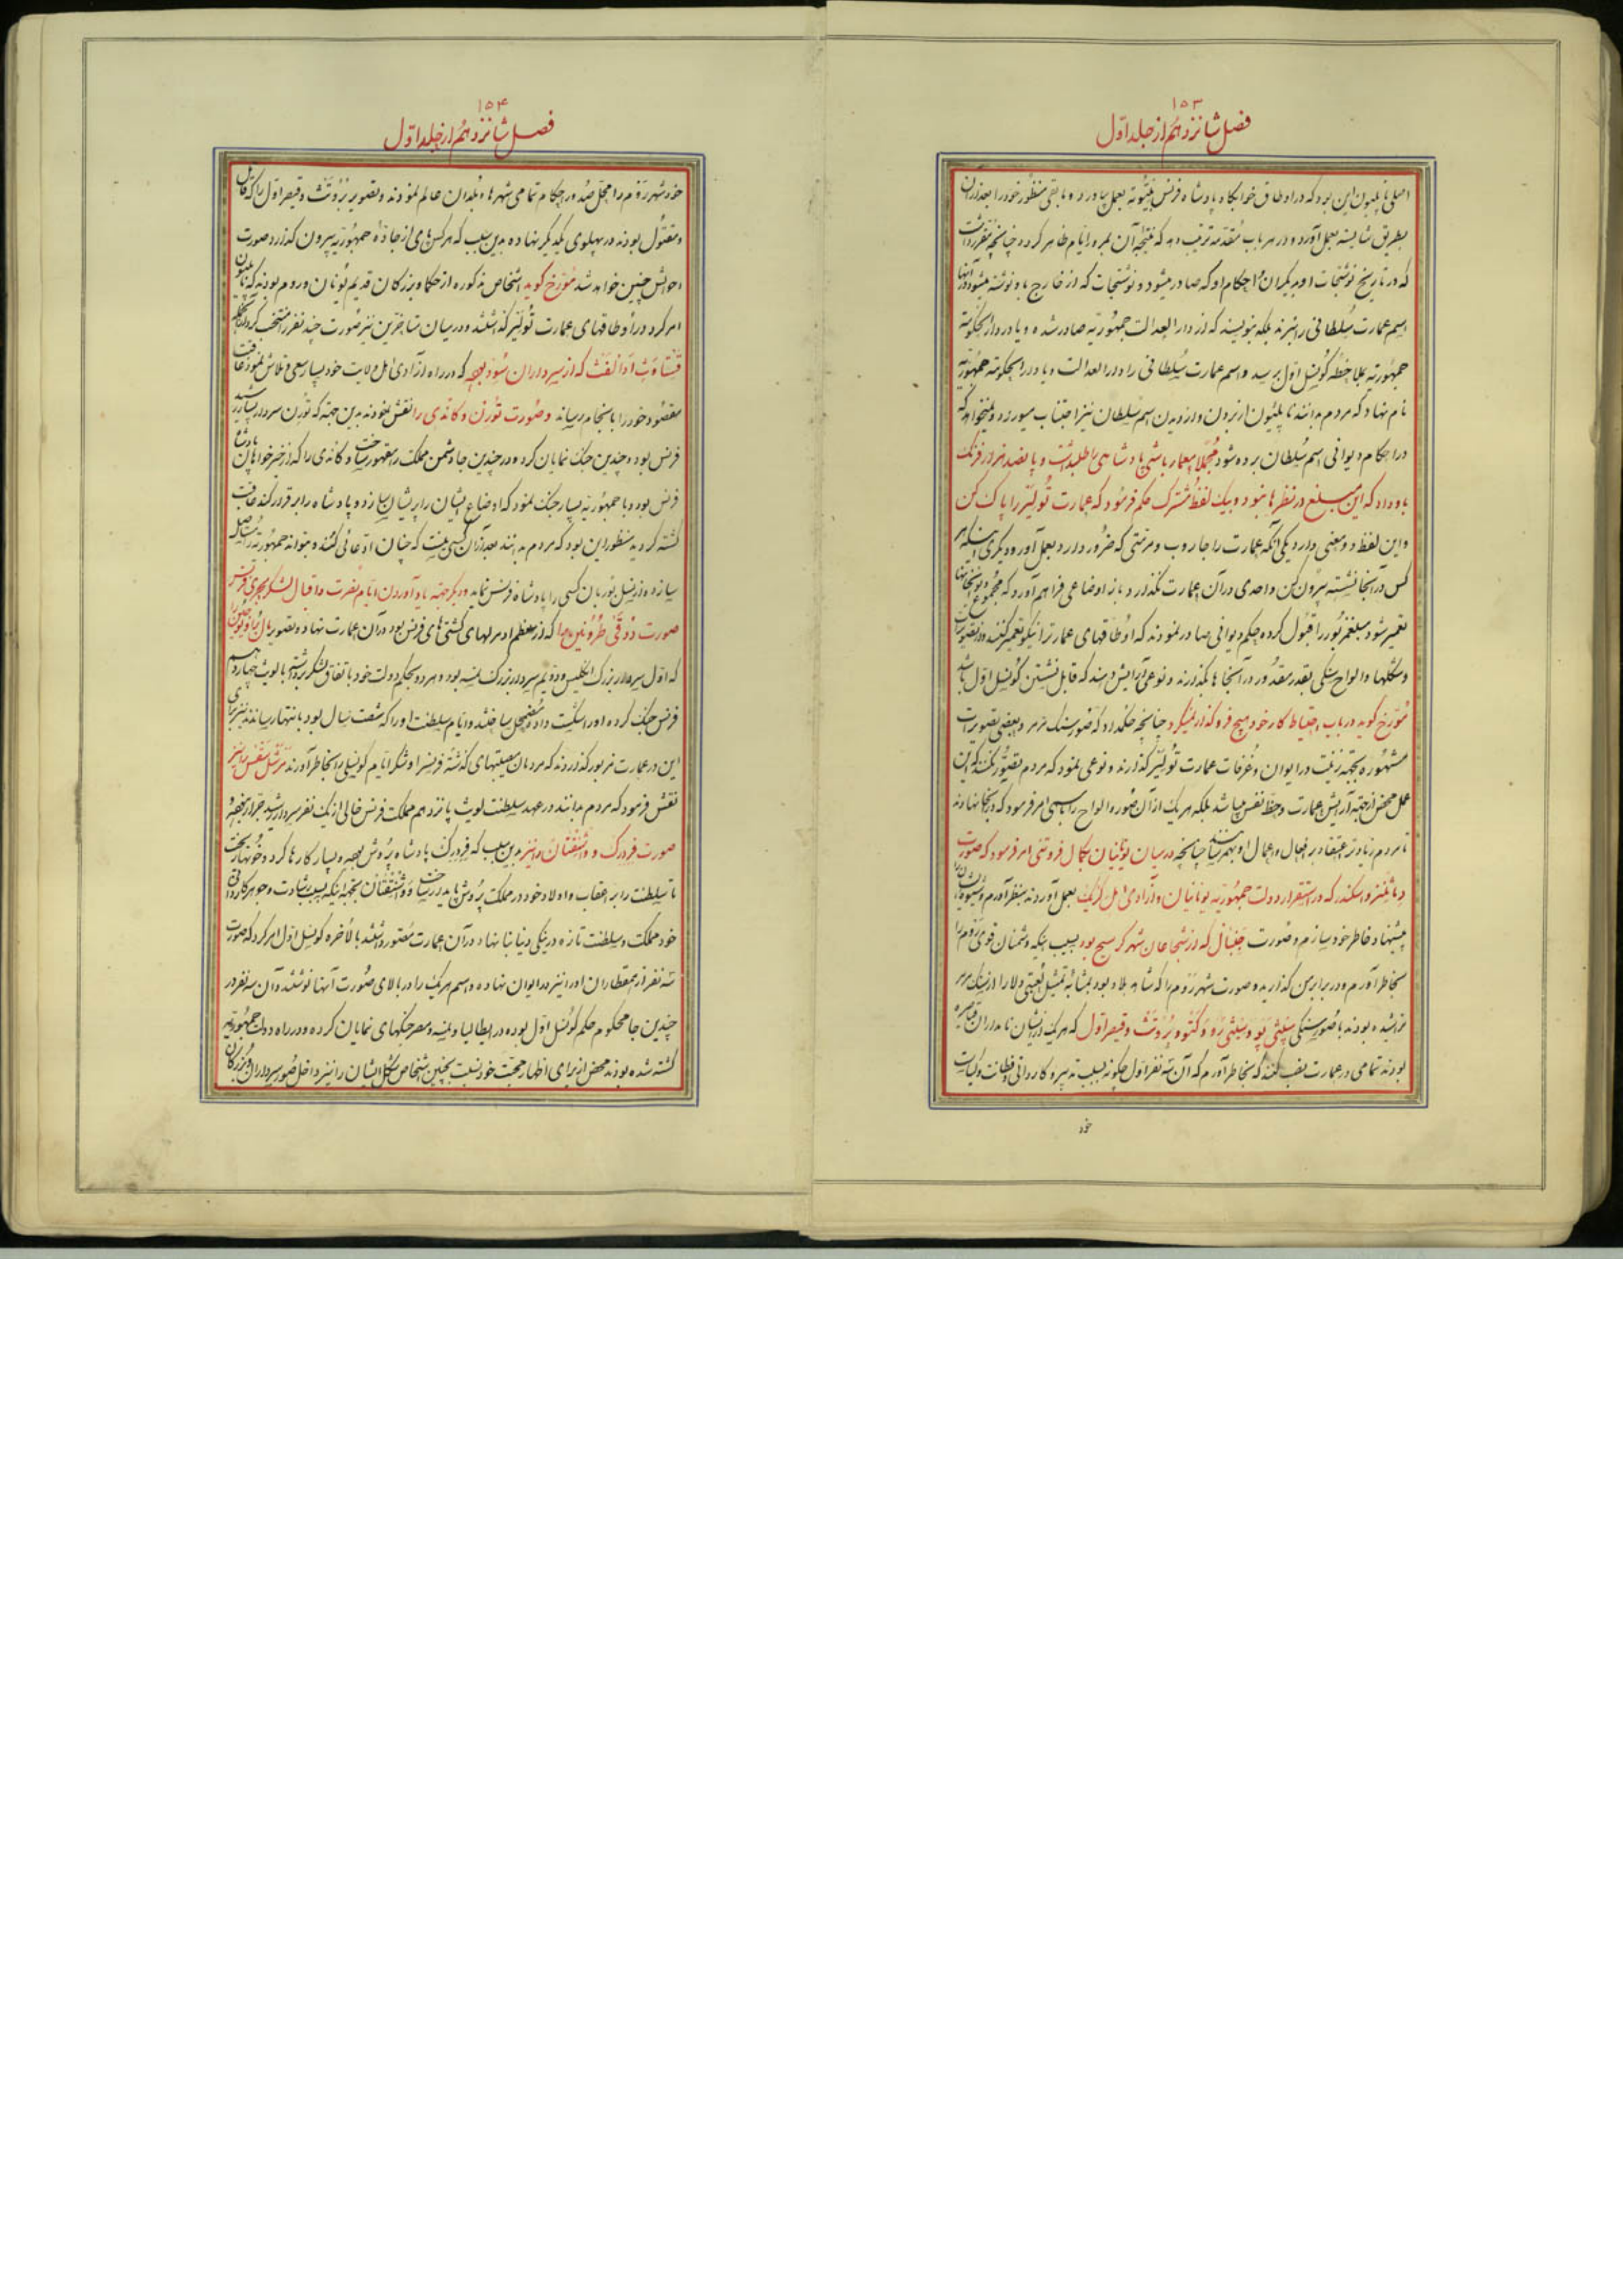 ۱۵۳
فصل شانزدهم از جلد اول
اصلی ناپلیون این بود که در اوطاق خوابکاه پادشاه فرنس بیتوته بعمل بیاورد و مابقی منظور خود را بعد از آن
بطریق شایسته بعمل آورد و در هر باب مقدمه ترتیب دهد که نتیجه آن بمرور ایام ظاهر کردد چنانچه مقرر داشت
که در تاریخ نوشتجات او و دیکران و احکام او که صادر میشود و نوشتجات که از خارج باو نوشته میشود در آنها
اسم عمارت سلطانی را نبرند بلکه بنویسند که از دار العدالت جمهوریه صادر شده و یا در دار الحکومة
جمهوریه بملاحظه کونسل اول رسید و اسم عمارت سلطانی را دار العدالت و یا دار الحکومة جمهوریه
نام نهاد که مردم بدانند ناپلیون از بردن و از دیدن اسم سلطان نیز اجتناب میورزد و نمیخواهد که
در احکام دیوانی اسم سلطان برده شود مجملا معمار باشی پادشاهی را طلب داشت و پانصد هزار فرنک
باو داد که این مبلغ در نظرها بنبود و بیک لفظ مشترک حکم فرمود که عمارت تولیر را پاک کن
و این لفظ دو معنی دارد یکی آنکه عمارت را جاروب و مرمتی که ضرور دارد بعمل آور و دیکری اینکه هر
کس در آنجا نشسته بیرون کن و احدی در آن عمارت نکذارد و باز اوضاعی فراهم آورد که مجموع
تعمیر شود مبلغ مزبور را قبول کرده حکم دیوانی صادر نمودند که اوطاقهای عمارت را نیکو تعمیر کنند و از تصویرات
و شکلها و الواح سنکی بقدر مقدور در آنجا ها بکذارند و نوعی آرایش دهند که قابل نشستن کونسل اول باشد
مورخ کوید در باب احتیاط کار خود هیچ فروکذار نمیکرد چنانچه حکم داد که صور سنک مرمر و بعضی تصویرات
مشهوره بجهة زینت در ایوان و غرفات عمارت تولیر کذارند و نوعی نمود که مردم تصور نکنند که این
عمل محض از جهة آرایش عمارت و حظ نفس میباشد بلکه هر یک از آن صور و الواح را بسببی امر فرمود که در آنجا نهادند
تا مردم زیادتر اعتقاد بر افعال و اعمال او بهمرسانند چنانچه در میان یونانیان بکمال فروتنی امر فرمود که صورت
دماثنز و اسکندر که در استقرار دولت جمهوریه یونانیان و آزادی اهل کریک بعمل آوردند بنظر آورم و شیوه ایشان را
پیشنهاد خاطر خود سازم و صورت حنبال که از شجاعان شهر کرسیج بود بسبب اینکه دشمنان قوی روم را
بخاطر آورم و در برابر من کذارید و صورت شهر روم را که شاه بلاد بود بمثابه تمثیل لعبتی دلارا از سنک مرمر
تراشیده بودند با صور سنکی سپئی پو و سپئی رو و کتو و بروتش و قیصر اول که هر یک از ایشان نامداران قیاصره
بودند تمامی در عمارت نصب کنند که بخاطر آورم که آن سه نفر اول چکونه بسبب تدبیر و کاردانی و فطانت و کیاست
خود
۱۵۴
فصل شانزدهم از جلد اول
خود شهر روم را محل صدور احکام تمامی شهرها و بلدان عالم نمودند و تصویر بروتش و قیصر اول را که قاتل
و مقتول بودند در پهلوی یکدیکر نهاده بدین سبب که هر کس پای از جاده جمهوریه بیرون کذارد صورت
احوالش چنین خواهد شد مورخ کوید اشخاص مذکوره از حکما و بزرکان قدیم یونان و روم بودند که ناپلیون
امر کرد در اوطاقهای عمارت تولیر کذاشتند و در میان متاخرین نیز صورت چند نفر را منتخب کرد از آنجمله
قستاوث ادالفث که از سرداران سود بود که در راه آزادی اهل ولایت خود بسیار سعی و تلاش نمود عاقبت
مقصود خود را بانجام رسانید و صورت تورن و کاندی را نقش نمودند بدین جهة که تورن سردار رشید
فرنس بود و چندین جنک نمایان کرده در چندین جا دشمن مملکت را مقهور ساخت و کاندی را که از خیر خواهان پادشاه
فرنس بود و با جمهوریه بسیار جنک نمود که اوضاع ایشان را پریشان سازد و پادشاه را برقرار کند عاقبت
کشته کردید منظور این بود که مردم بدانند بعد از آن کسی نیست که چنان ادعائی کند و بتواند جمهوریه را مستأصل
سازد و از نسل بوربان کسی را پادشاه فرنس نماید و دیکر بجهة یاد آوردن ایام نصرت و اقبال لشکر بحری فرنس
صورت دوقی طرونین را که از معظم امیرالهای کشتیهای فرنس بود در آن عمارت نهاد و تصویر مال برا و یوجین را
که اول سردار بزرک انکلیس و دویم سردار بزرک نمسه بود و هر دو بحکم دولت خود باتفاق لشکر برداشته با لویث چهاردهم
فرنس جنک کرده او را شکست داد و مضمحل ساختند و ایام سلطنت او را که شصت سال بود بانتها رسانیدند نیز برای
این در عمارت مزبور کذاردند که مردمان مصیبتهای کذشته فرنس را و شکر ایام کونسلی را بخاطر آورند مرشل سقس را نیز
نقش فرمود که مردم بدانند در عهد سلطنت لویث پانزدهم مملکت فرنس خالی از یک نفر سردار رشید جرار نبوده
صورت فردرک و واشنقتان را نیز بدین سبب که فردرک پادشاه پروش بود و بسیار کارها کرد و خونها ریخت
تا سلطنت را بر اعقاب و اولاد خود در مملکت پروش پایدار ساخت و واشنقتان بجهة اینکه بسبب رشادت و جوهر کاردانی
خود مملکت و سلطنت تازه در ینکی دنیا بنا نهاد در آن عمارت مصور داشتند بالاخره کونسل اول امر کرد که صورت
سه نفر از همقطاران او را نیز در ایوان نهاده و اسم هر یک را در بالای صورت آنها نوشتند و آن سه نفر در
چندین جا محکوم حکم کونسل اول بوده در ایطالیا و نمسه و مصر جنکهای نمایان کرده و در راه دولت جمهوریه
کشته شده بودند محض از برای اظهار محبت خود نسبت بچنین اشخاص شکل ایشان را نیز داخل صور سرداران و بزرکان